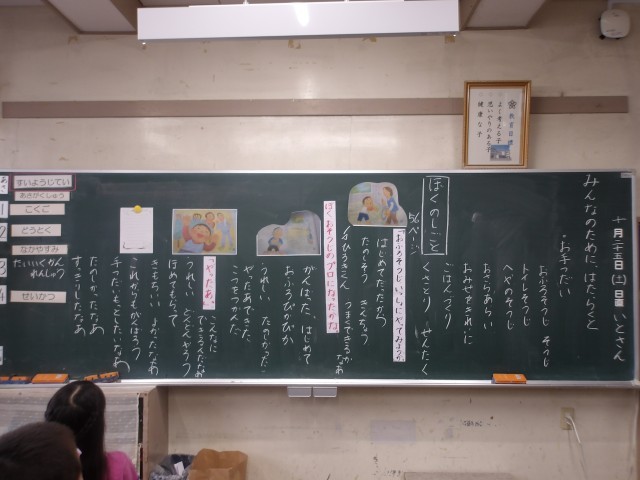 十月二十五日(土)日直 いとさん
みんなのために、はたらくと
・お手つだい
おふろそうじ そうじ
トイレそうじ
へやのそうじ
おさらあらい
おみせをきれいに
ごはんづくり
くさとり せんたく
ぼくのしごと
56ページ
「おふろそうじ、いっしょにやってみようか。」
はじめてだったから
たのしそう
ぼく、おそうじのプロになったかな。
がんばった、はじめて
おふろぴかぴか
うれしい たのしかった
やったあできた
こつをつかんだ
「やったあ。」
こんなに
できるんだなあ
うれしい
ほめてもらって
きもちいい よかったなあ
これからもがんばろう
手つだいもっとしたいなあ
たのしかったなあ
すっきりしたなあ
あさ
すいようじてい
あさがくしゅう
1
こくご
2
どうとく
なかやすみ
3
たいいくかん
れんしゅう
4
せいかつ
教育目標
よく考える子
思いやりのある子
健康な子